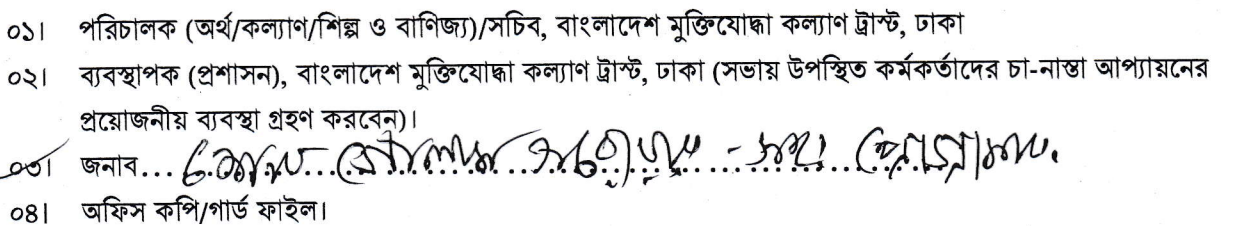 ০১। পরিচালক (অর্থ/কল্যাণ/শিল্প ও বাণিজ্য)/সচিব, বাংলাদেশ মুক্তিযোদ্ধা কল্যাণ ট্রাস্ট, ঢাকা
০২। ব্যবস্থাপক (প্রশাসন), বাংলাদেশ মুক্তিযোদ্ধা কল্যাণ ট্রাস্ট, ঢাকা (সভায় উপস্থিত কর্মকর্তাদের চা-নাস্তা আপ্যায়নের
প্রয়োজনীয় ব্যবস্থা গ্রহণ করবেন)।
০৩। জনাব...
০৪। অফিস কপি/গার্ড ফাইল।